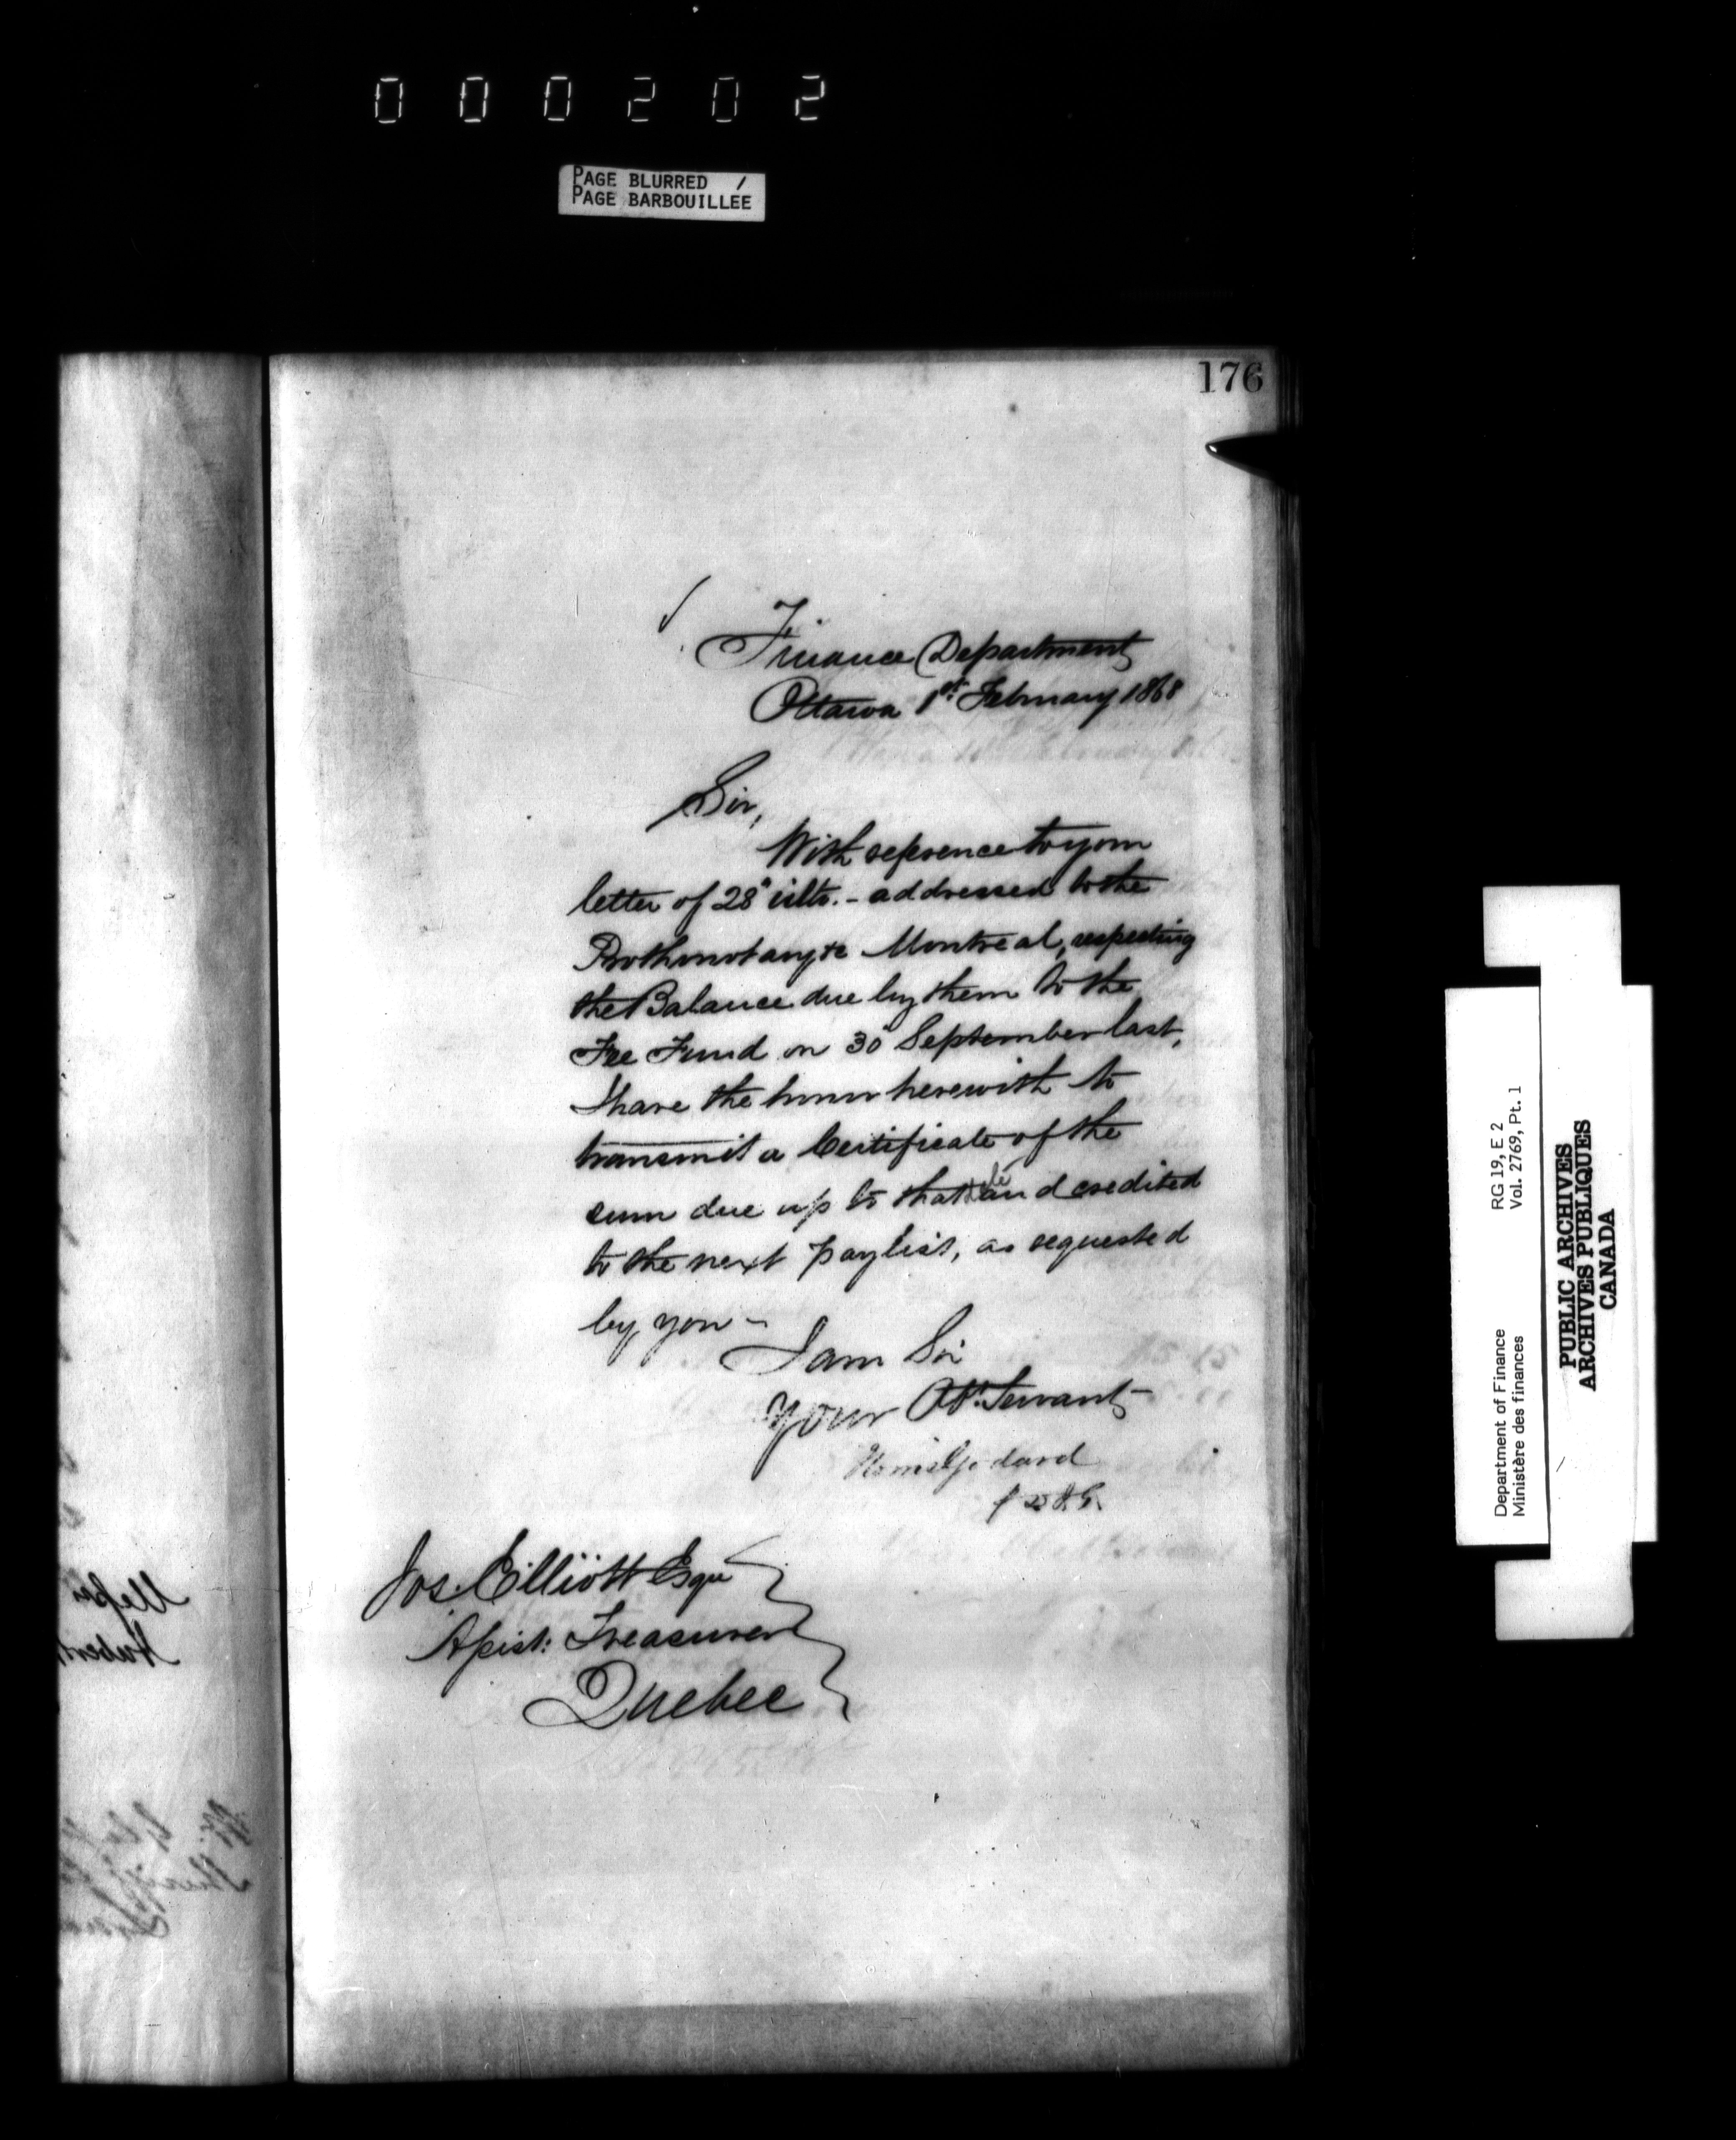 000202
PAGE BLURRED /
PAGE BARBOUILLÉE
176
Finance Department
Ottawa 1st February 1868
Sir,
With reference to your
letter of 28" ulto. - addressed to the
Prothonotary &c Montreal, respecting
the Balance due by them to the
Fee Fund on 30 September last,
I have the honor herewith to
transmit a Certificate of the
sum due up to that date and credited
to the next paylist, as requested
by you -
I am Sir
Your Obt. Servant
Jos. Elliott Esqre
Assist: Treasurer
Quebec
Department of Finance RG 19, E 2
Ministère des finances Vol. 2769, Pt. 1
PUBLIC ARCHIVES
ARCHIVES PUBLIQUES
CANADA